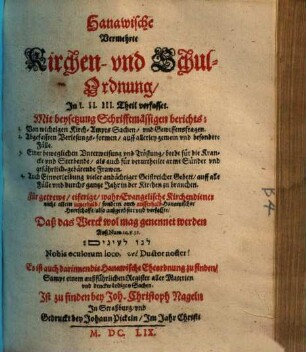 Hanawische
Vermehrte
Kirchen- vnd Schul-
Ordnung/
In I. II. III. Theil verfasset.
Mit beysetzung Schrifftmässigen berichts:
Von wichtigen Kirch-Ampts Sachen/ und Gewissensfragen.
Abgefassten Verlesungs-formen/ auff allerley gemein und besondere
Fälle.
Einer beweglichen Unterweisung vnd Tröstung/ beede für die Kran-
cke und Sterbende/ als auch für verurtheilte arme Sünder und
gefährlich-gebärende Frawen.
Und Einverleibung vieler andächtiger Geistreicher Gebett/ auff alle
Fälle vnd durchs gantze Jahr in der Kirchen zu brauchen.
Für getrewe/ eiferige/ wahr-Evangelische Kirchendiener
nicht allein sondern auch Hanawischer
Herrschafft/
Daß das Werck wol mag genennet werden
Auß Num. 10. v. 31.
לנו לעינים:
Nobis oculorum loco, vel Ductor noster!
Es ist auch darinnen die Hanawische Eheordnung zu finden/
Sampt einem außführlichen Register aller Materien
und denckwürdigen Sachen.
Ist zu finden bey Joh. Christoph Nageln
In Straßburg/ und
Gedruckt bey Johann Pickeln/ Im Jahr Christi
M. DC. LIX.